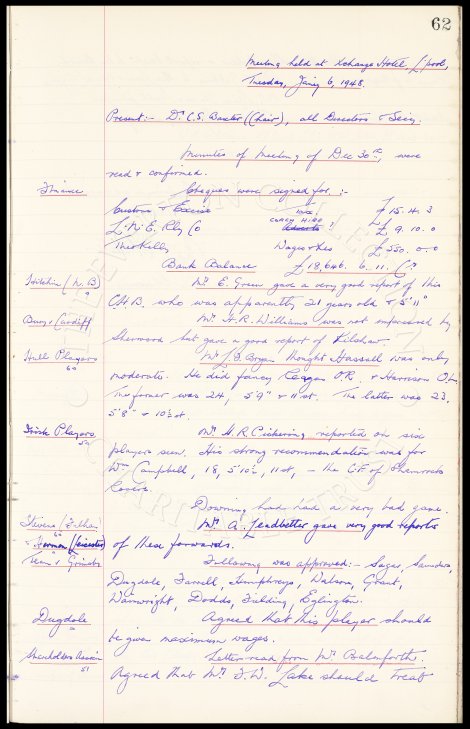 62
Meeting held at Xchange Hotel, L'pool,
Tuesday, Jan'y 6, 1948.
Present:- Dr C.S. Baxter (Chair), all Directors & Secy.
Minutes of Meeting of Dec 30th, were
read & confirmed.
Finance Cheques were signed for :-
Customs & Excise £15. 4. 3
L.N.E. Rly Co COACH HIRE £ 9. 10. 0
Theo Kelly Wages & Xes £550. 0. 0
Bank Balance £18,646. 6. 11. Cr
Hitchin (N. B) Mr E. Green gave a very good report of this
C.H.B. who was apparently 21 years old & 5'11"
Bury v Cardiff Mr H.R. Williams was not impressed by
Sherwood but gave a good report of
Hull Players Mr J.C. Bryan thought Hassall was only
60
moderate. He did fancy Reagan OR, & Harrison O.L,
The former was 24, 5'9" & 11 st. The latter was 23,
5'8" & 10½ st.
Irish Players Mr H.R. Pickering reported on six
59
players seen. His strong recommendation was for
Wm Campbell, 18, 5'10½, 11 st, - the C.F. of Shamrock
Rovers.
Downing had had a very bad game.
Stevens (Fulham) Mr A. Leadbetter gave very good reports
60
& Harmon (Leicester) of these forwards.
Team v Grimsby Following was approved:- Sagar, Saunders,
Dugdale, Farrell, Humphreys, Watson, Grant,
Wainwright, Dodds, Fielding, Eglington.
Dugdale Agreed that this player should
be given maximum wages.
Shareholders Assoc'n Letter read from Mr Balmforth.
51
Agreed that Mr F.W. Lake should treat